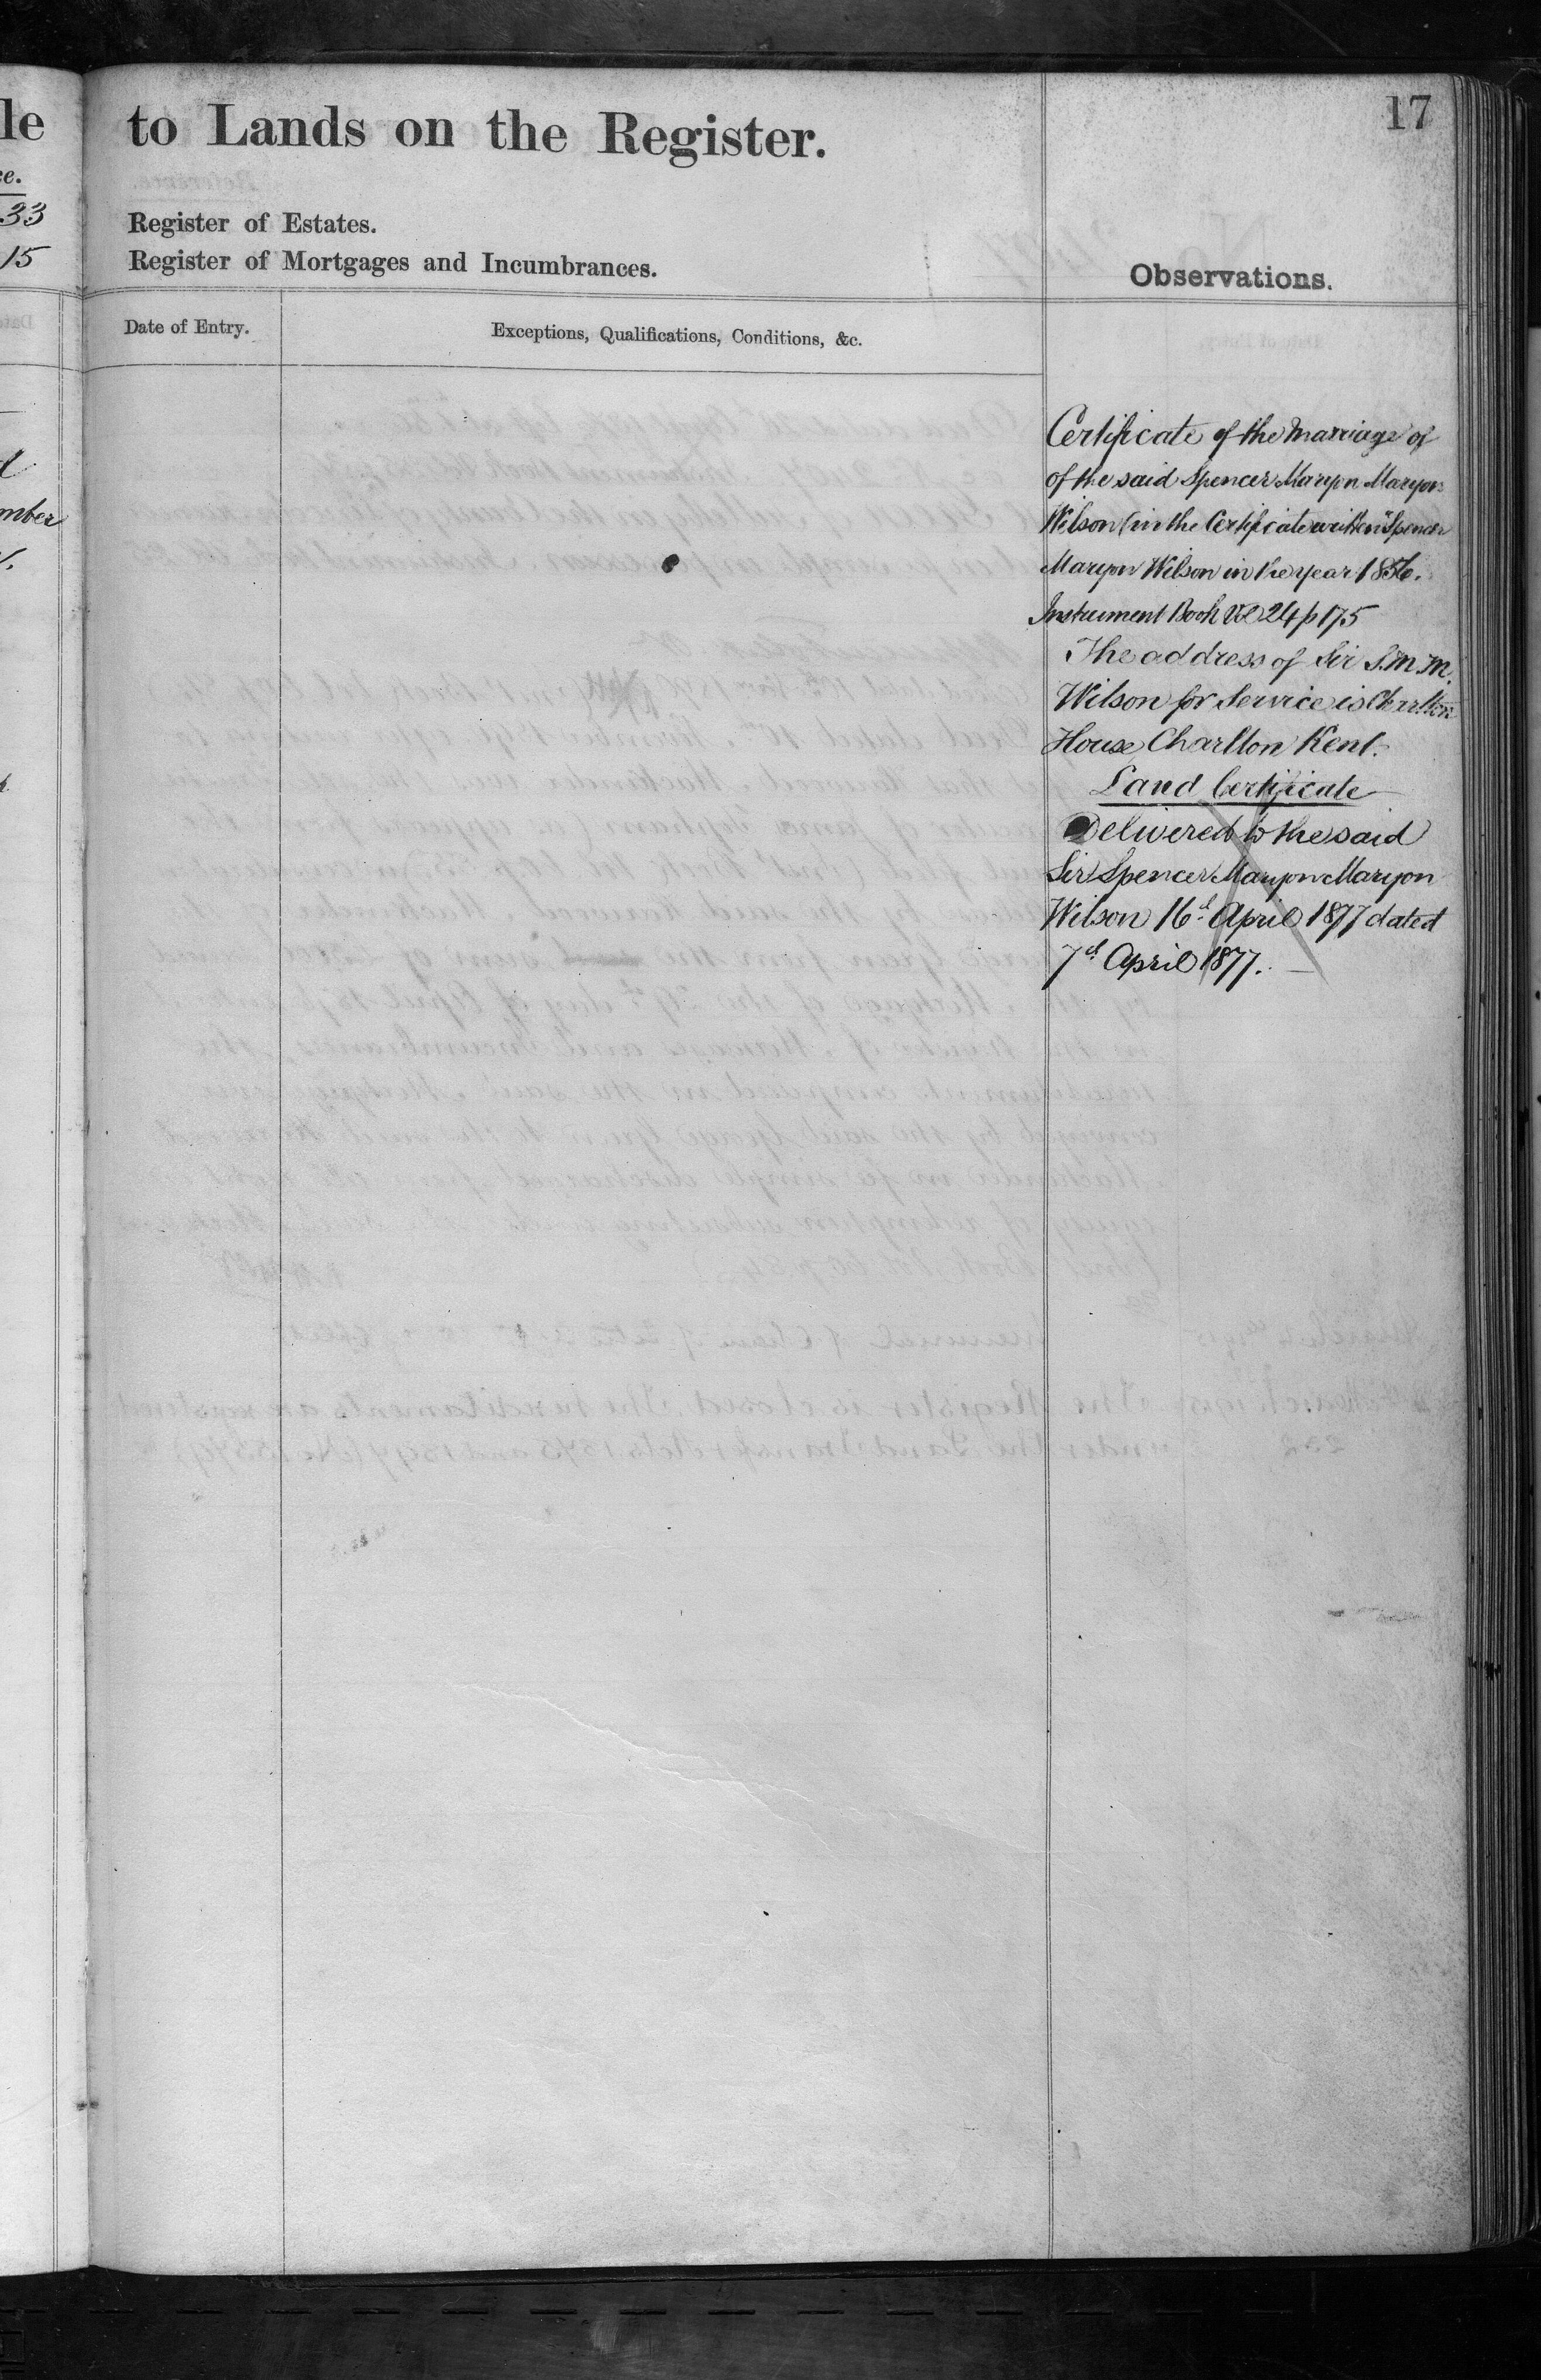 le
ce.
33
15
mber
17
to Lands on the Register.
Register of Estates.
Register of Mortgages and Incumbrances.
Observations.
Date of Entry.
Exceptions, Qualifications, Conditions, &c.
Certificate of the Marriage of
of the said Spencer Maryon Maryon
Wilson (in the Certificate written "Spencer
Maryon Wilson in the year 1856.
Instrument Book Vol 24 p 175
The address of Sir S. M. M.
Wilson for Service is Charlton
House, Charlton Kent.
Land Certificate
Delivered to the said
Sir Spencer Maryon Maryon
Wilson 16th April 1877 dated
7th April 1877.